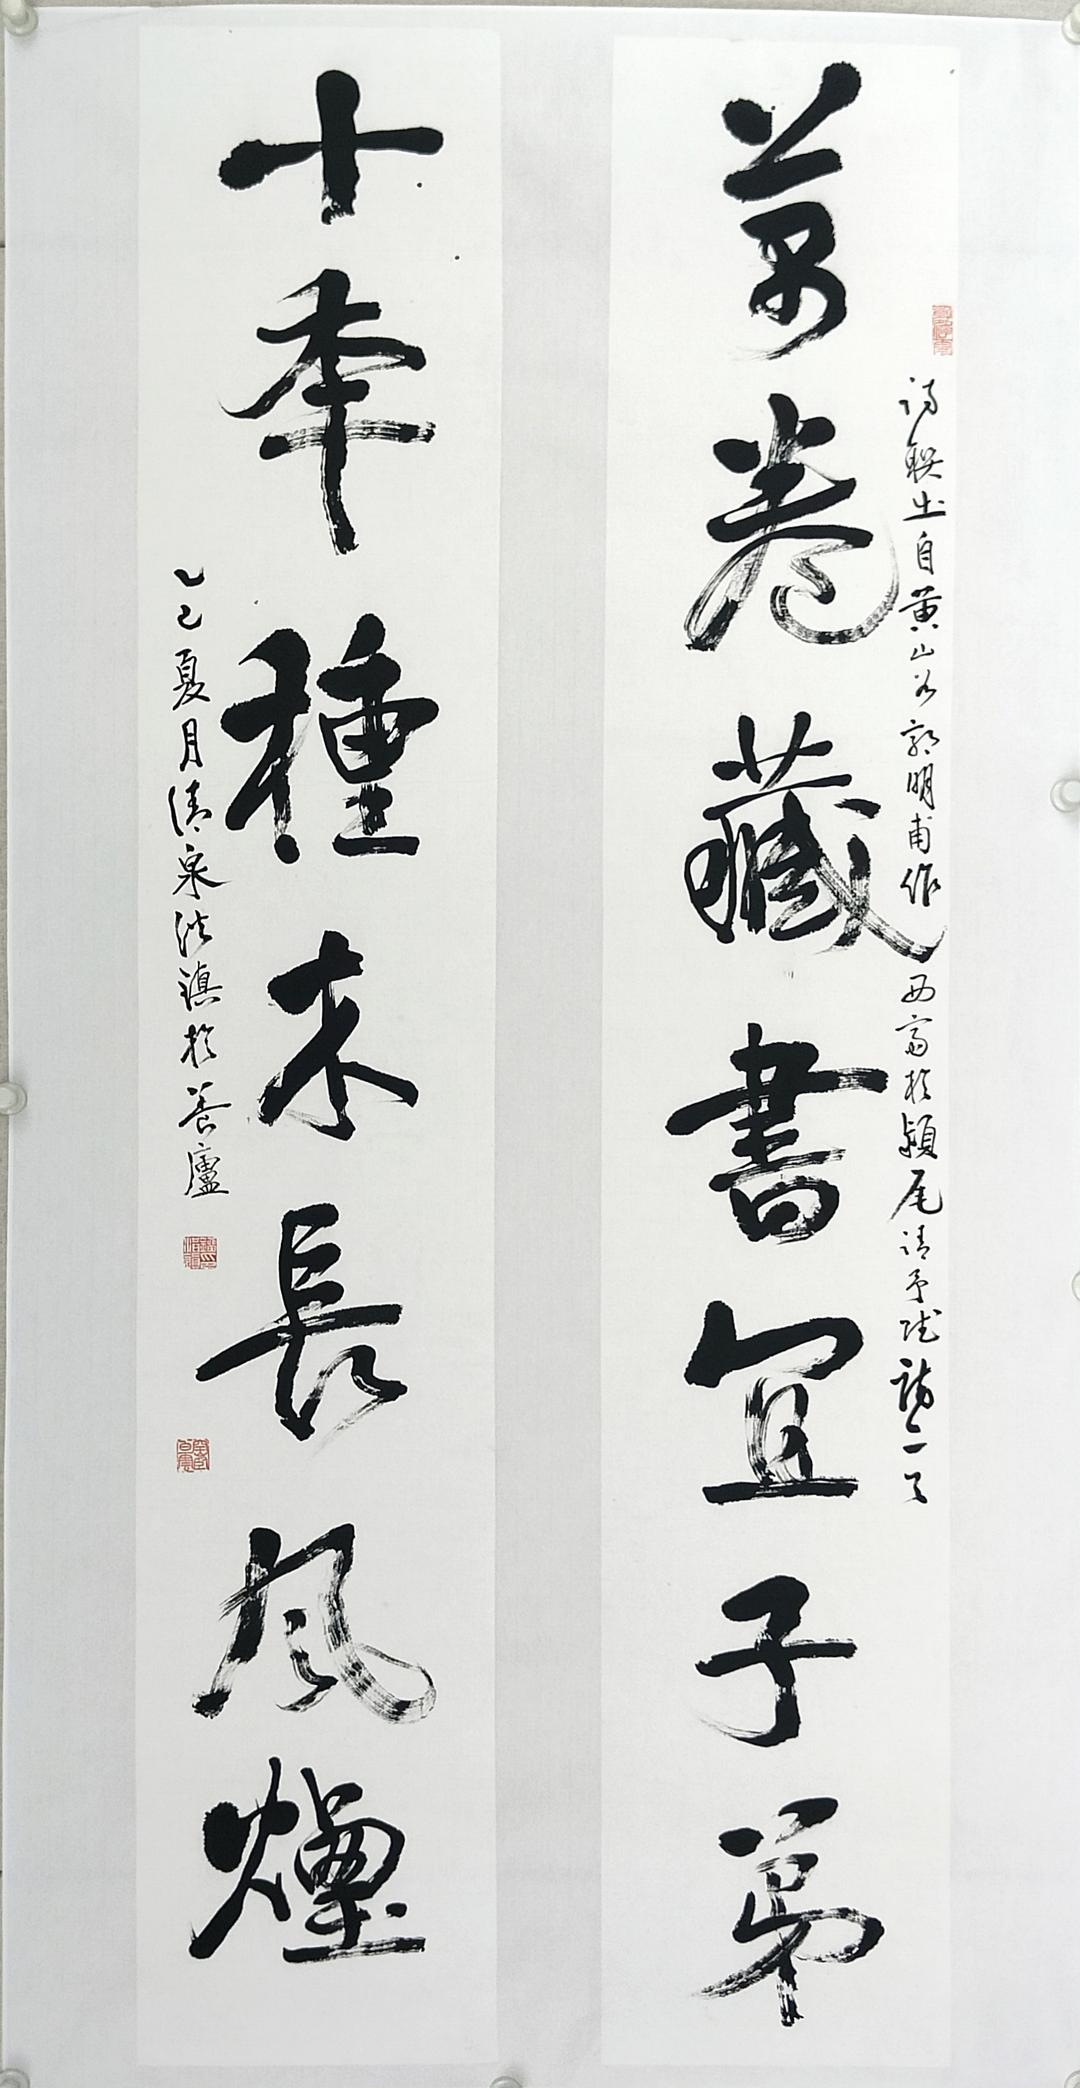 詩聯出自黃山谷郭明甫作西齋於潁尾請予賦詩二首
萬卷藏書宜子弟
十年種木長風煙
乙巳夏月清泉洪鎮於養廬